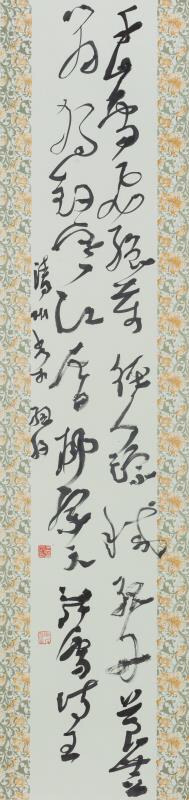 千山鳥飛絕萬徑人蹤滅孤舟蓑笠
翁獨釣寒江雪柳宗元雪詩